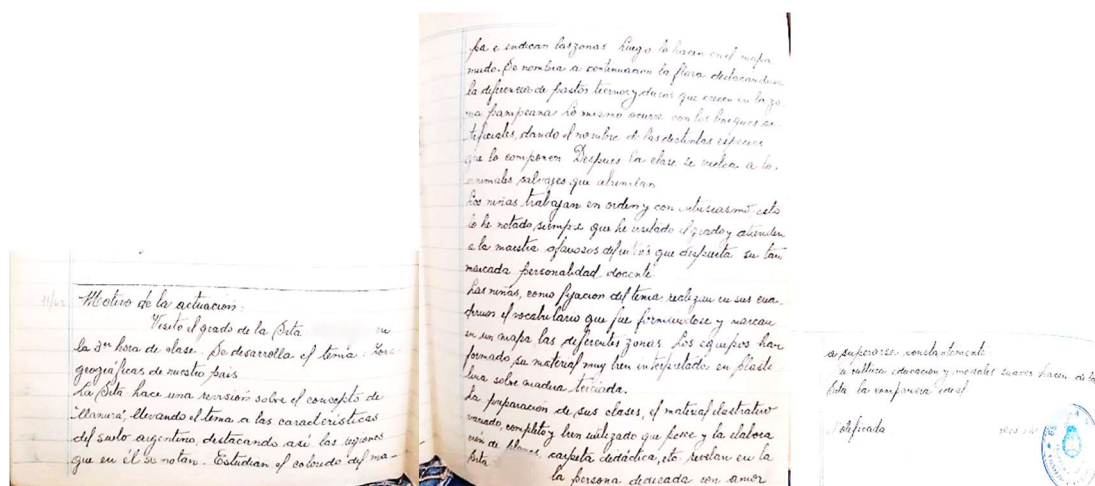 11/62
Motivo de la actuación:
Visito el grado de la Srta en
la 3ra hora de clase. Se desarrolla el tema: Zonas
geográficas de nuestro país
La Srta hace una revisión sobre el concepto de
"llanura", llevando el tema a las características
del suelo argentino, destacando así las regiones
que en él se notan. Estudian el coloreado del ma-
pa e indican las zonas. Luego lo hacen en el mapa
mudo. Se nombra a continuación la flora destacandose
la diferencia de pastos tiernos y duros que crecen en la zo-
na pampeana. Lo mismo ocurre con los bosques ar-
tificiales, dando el nombre de las distintas especies
que lo componen. Después la clase se vuelca a los
animales salvajes que
Las niñas trabajan en orden y con entusiasmo, esto
lo he notado, siempre que he visitado el grado y atienden
a la maestra que despierta su tan
marcada personalidad docente
Las niñas, como fijación del tema realizan en sus cua-
dernos el vocabulario que fue formandose y marcan
en un mapa las diferentes zonas. Los equipos han
formado su material muy bien interpretado en plasti-
lina sobre madera terciada.
La preparación de sus clases, el material ilustrativo
variado, completo y bien utilizado que posee y la elabora
ción de planes, carpeta didáctica, etc. revelan en la
Srta la persona dedicada con amor
a superarse constantemente
Su cultura educación y modales suaves hacen de la
Srta la compañera ideal
Notificada